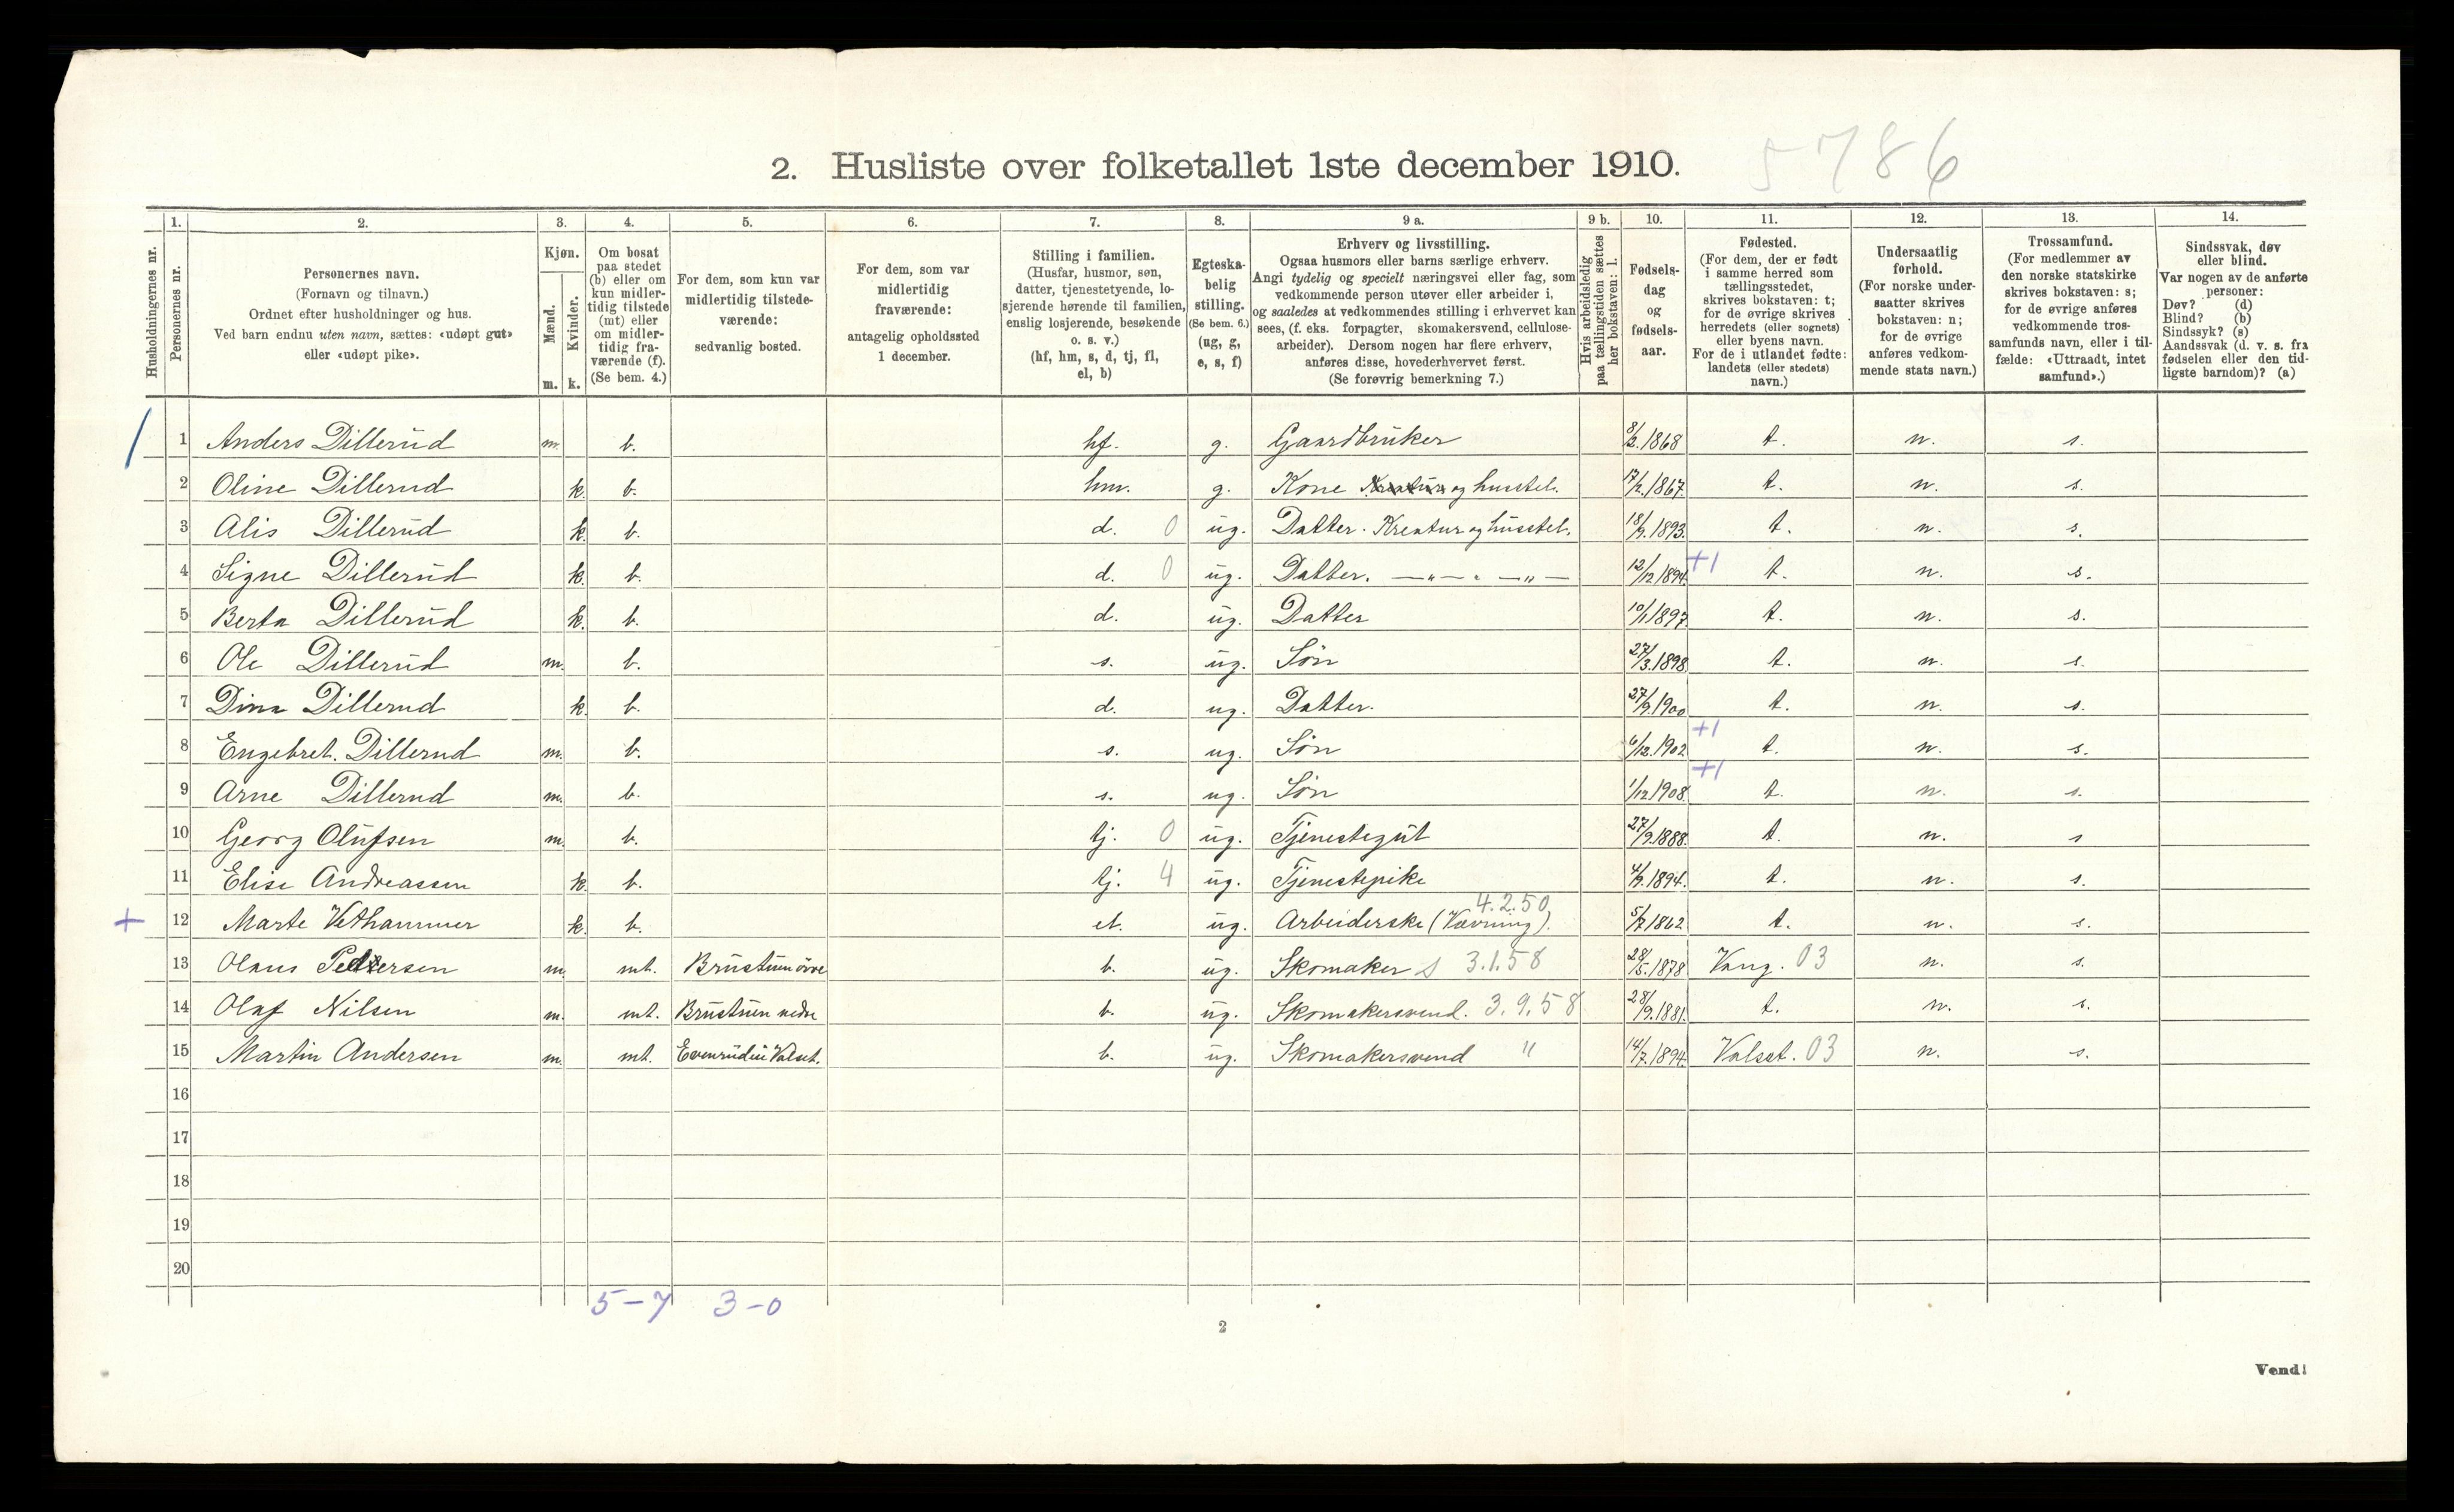 5786
2. Husliste over folketallet 1ste december 1910.
Husholdningernes nr.
1. Personernes nr.
2. Personernes navn.
(Fornavn og tilnavn.)
Ordnet efter husholdninger og hus.
Ved barn endnu uten navn, sættes: «udøpt gut»
eller «udøpt pike».
3. Kjøn.
Mænd. m.
Kvinder. k.
4. Om bosat
paa stedet
(b) eller om
kun midler-
tidig tilstede
(mt) eller
om midler-
tidig fra-
værende (f).
(Se bem. 4.)
5. For dem, som kun var
midlertidig tilstede-
værende:
sedvanlig bosted.
6. For dem, som var
midlertidig
fraværende:
antagelig opholdssted
1 december.
7. Stilling i familien.
(Husfar, husmor, søn,
datter, tjenestetyende, lo-
sjerende hørende til familien,
enslig losjerende, besøkende
o. s. v.)
(hf, hm, s, d, tj, fl,
el, b)
8. Egteska-
belig
stilling.
(Se bem. 6.)
(ug, g,
e, s, f)
9 a. Erhverv og livsstilling.
Ogsaa husmors eller barns særlige erhverv.
Angi tydelig og specielt næringsvei eller fag, som
vedkommende person utøver eller arbeider i,
og saaledes at vedkommendes stilling i erhvervet kan
sees, (f. eks. forpagter, skomakersvend, cellulose-
arbeider). Dersom nogen har flere erhverv,
anføres disse, hovederhvervet først.
(Se forøvrig bemerkning 7.)
9 b. Hvis arbeidsledig
paa tællingstiden sættes
her bokstaven: l.
10. Fødsels-
dag
og
fødsels-
aar.
11. Fødested.
(For dem, der er født
i samme herred som
tællingsstedet,
skrives bokstaven: t;
for de øvrige skrives
herredets (eller sognets)
eller byens navn.
For de i utlandet fødte:
landets (eller stedets)
navn.)
12. Undersaatlig
forhold.
(For norske under-
saatter skrives
bokstaven: n;
for de øvrige
anføres vedkom-
mende stats navn.)
13. Trossamfund.
(For medlemmer av
den norske statskirke
skrives bokstaven: s;
for de øvrige anføres
vedkommende tros-
samfunds navn, eller i til-
fælde: «Uttraadt, intet
samfund».)
14. Sindssvak, døv
eller blind.
Var nogen av de anførte
personer:
Døv? (d)
Blind? (b)
Sindssyk? (s)
Aandssvak (d. v. s. fra
fødselen eller den tid-
ligste barndom)? (a)
1 Anders Dillerud m. b. hf. g. Gaardbruker 8/2.1868 t. n. s.
2 Oline Dillerud k. b. hm. g. Kone Kreatur og husstel. 17/2.1867. t. n. s.
3 Alis Dillerud k. b. d. 0 ug. Datter. Kreatur og husstel. 18/9.1893. t. n. s.
4 Signe Dillerud k. b. d. 0 ug. Datter. —"— " —"— 12/12 1894. +1 t. n. s.
5 Berta Dillerud k. b. d. ug. Datter 10/1 1897. t. n. s.
6 Ole Dillerud m. b. s. ug. Søn 27/3.1898. t. n. s.
7 Dina Dillerud k. b. d. ug. Datter. 27/9.1900 t. n. s.
8 Engebret. Dillerud m. b. s. ug. Søn 6/12.1902 +1 t. n. s.
9 Arne Dillerud m. b. s. ug. Søn 1/12.1908. +1 t. n. s.
10 Georg Olufsen m. b. tj. 0 ug. Tjenestegut 27/9.1888. t. n. s
11 Elise Andreassen k. b. tj. 4 ug. Tjenestepike 4/9.1894. t. n. s.
+ 12 Marte Vethammer k. b. el. ug. Arbeiderske (Vævning). 4.2.50 5/7 1862 t. n. s.
13 Olaus Pettersen m. mt. Brustuen övre b. ug. Skomaker s 3.1.58 28/5.1878 Vang. 03 n. s.
14 Olaf Nilsen m. mt. Brustuen nedre b. ug. Skomakersvend. 3.9.58 28/9.1881. t. n. s.
15 Martin Andersen m. mt. Evenrud in Valset. b. ug. Skomakersvend " 14/7.1894. Valset. 03 n. s.
16
17
18
19
20
5-7 3-0
2
Vend!